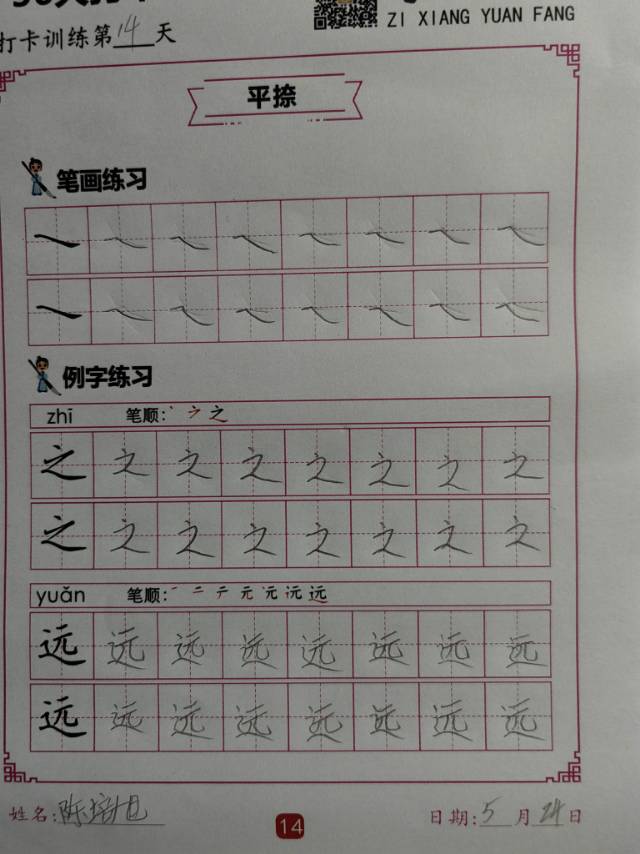 ZI XIANG YUAN FANG
打卡训练第14天
平捺
笔画练习
例字练习
zhī 笔顺: 之
之 之 之 之 之 之 之 之
之 之 之 之 之 之 之 之
yuǎn 笔顺: 一 二 テ 元 远
远 远 远 远 远 远 远 远
远 远 远 远 远 远 远 远
姓名:陈培旭 日期:5月24日
14